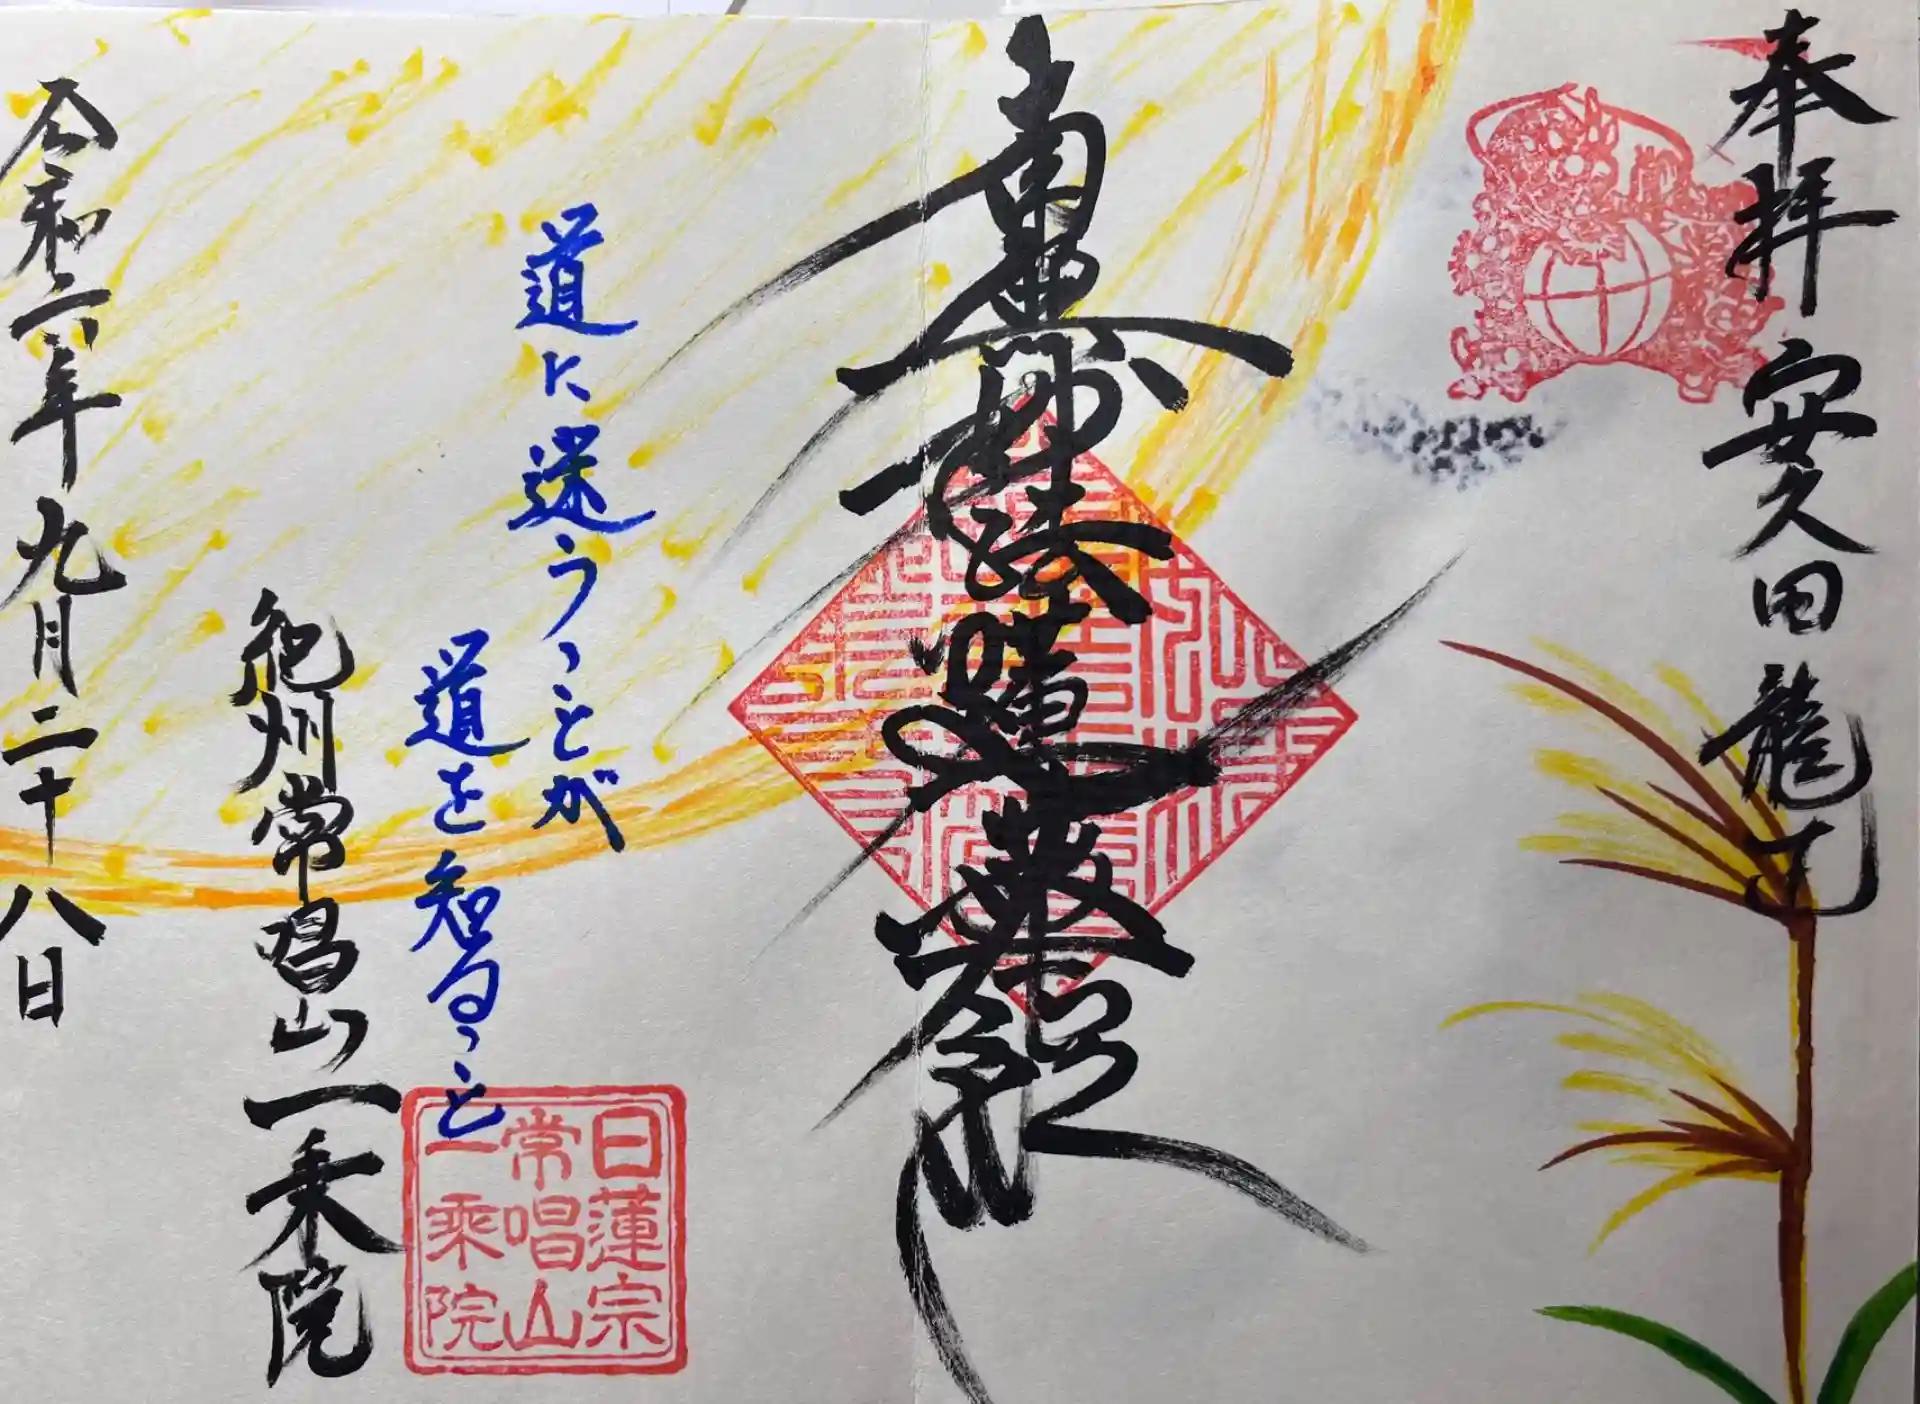 奉拝 安久田龍士
南無妙法蓮華経
道に迷うことが
道を知ること
日蓮宗
常唱山
一乗院
紀州常昌山一乗院
令和六年九月二十八日